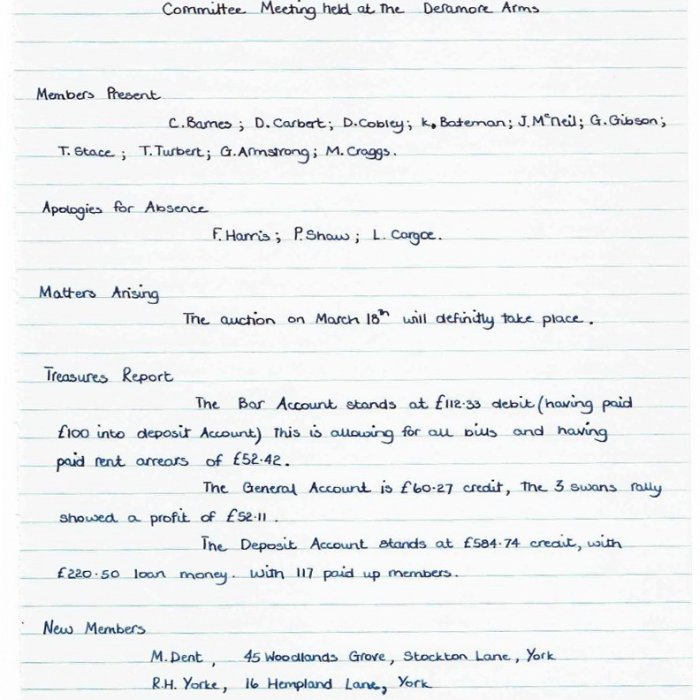 Committee Meeting held at the Deramore Arms
Members Present
C. Barnes ; D. Carbert ; D. Cobley ; K. Bateman ; J. McNeil ; G. Gibson ;
T. Stace ; T. Turbert ; G. Armstrong ; M. Craggs .
Apologies for Absence
F. Harris ; P. Shaw ; L. Cargoe .
Matters Arising
The auction on March 18th will definitly take place .
Treasures Report
The Bar Account stands at £112.33 debit (having paid
£100 into deposit Account) This is allowing for all bills and having
paid rent arrears of £52.42 .
The General Account is £60.27 credit, the 3 swans rally
showed a profit of £52.11 .
The Deposit Account stands at £584.74 credit, with
£220.50 loan money. With 117 paid up members .
New Members
M. Dent , 45 Woodlands Grove , Stockton Lane , York
R.H. Yorke , 16 Hempland Lane , York